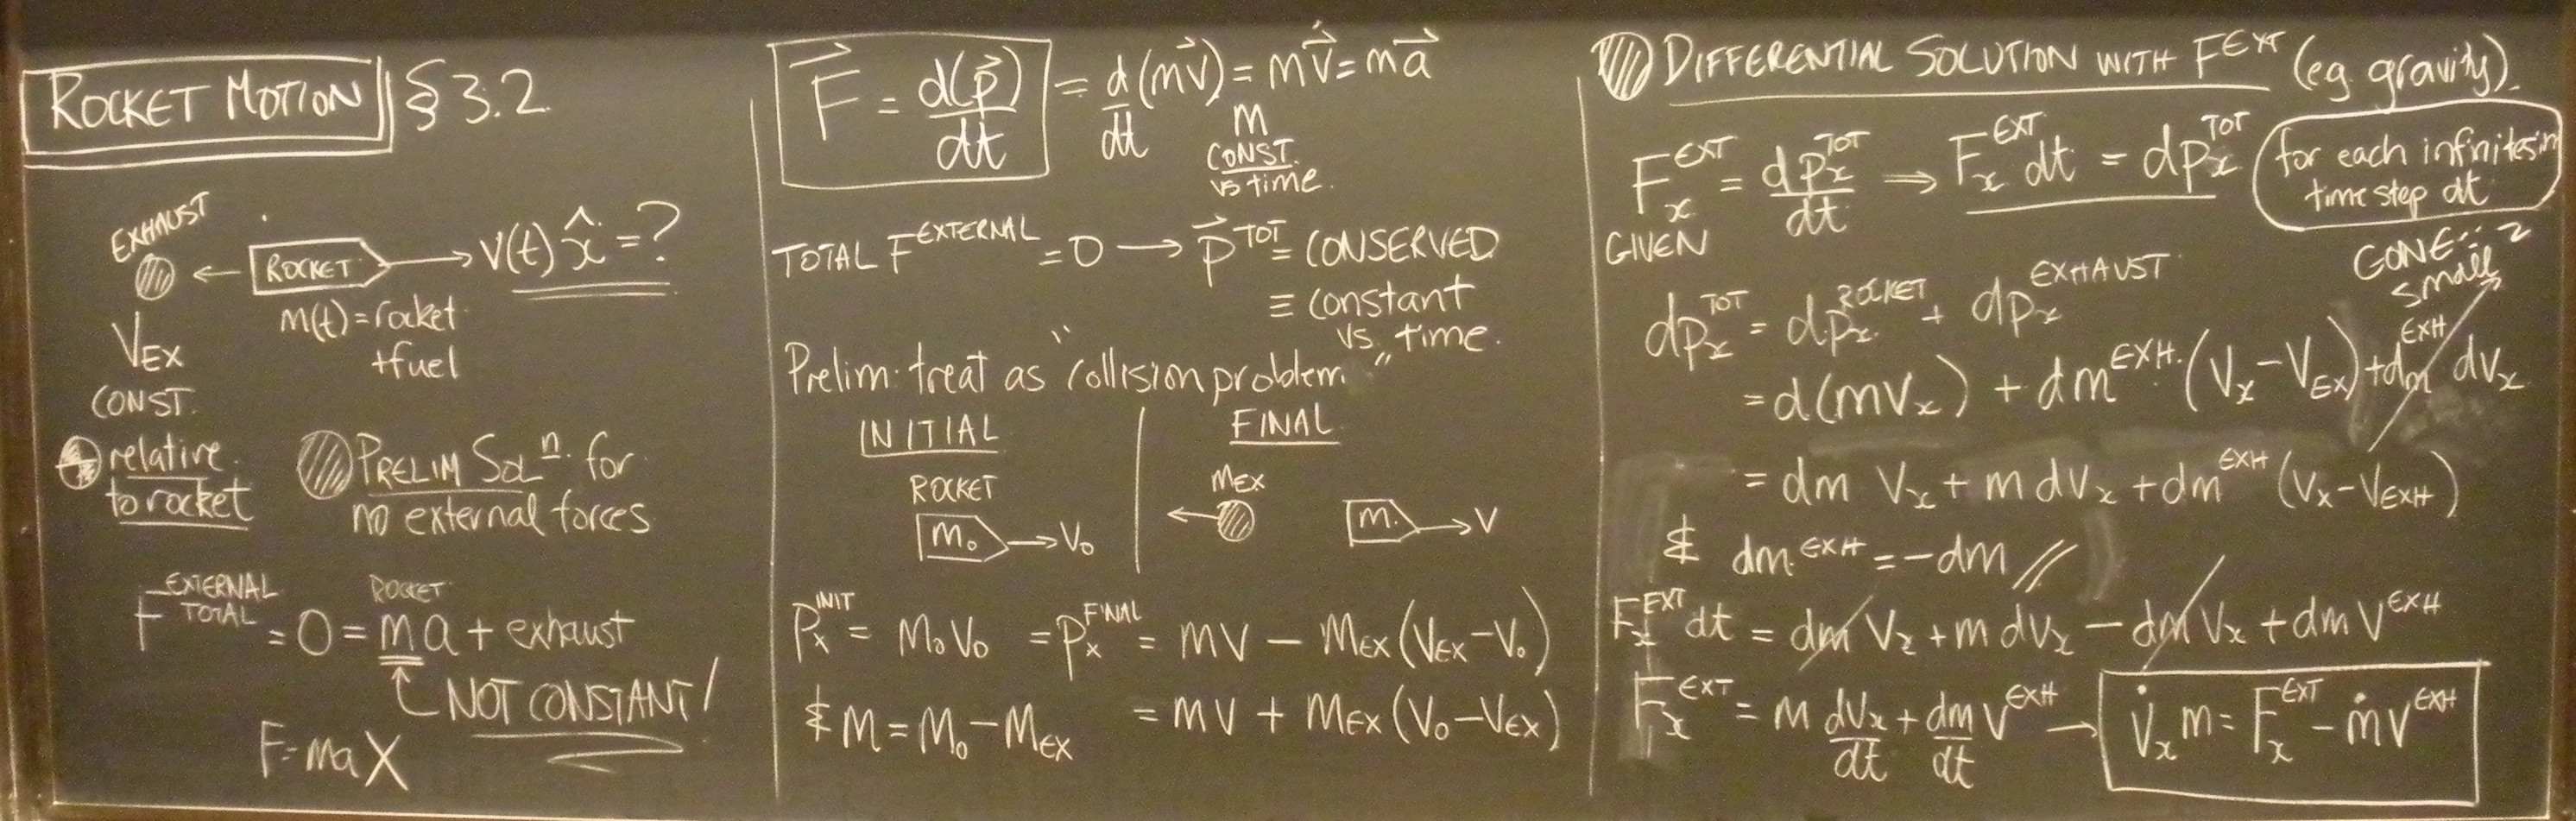 ROCKET MOTION § 3.2
EXHAUST
ROCKET
V(t) x̂ = ?
m(t) = rocket
+fuel
V_EX
CONST.
relative
to rocket
PRELIM SOLⁿ. for
no external forces
F^EXTERNAL TOTAL = 0 = ma + exhaust
ROCKET
NOT CONSTANT!
F=ma X
F⃗ = d(p⃗)/dt = d/dt (mv⃗) = mv⃗̇ = ma⃗
m
CONST.
vs time.
TOTAL F^EXTERNAL = 0 → p⃗^TOT = CONSERVED
≡ constant
vs. time.
Prelim: treat as "collision problem"
INITIAL
FINAL
ROCKET
m₀ → V₀
M_EX
m → V
P_x^INIT = M₀V₀ = P_x^FINAL = MV − M_EX(V_EX−V₀)
& M = M₀ − M_EX = MV + M_EX(V₀−V_EX)
DIFFERENTIAL SOLUTION WITH F^EXT (eg. gravity).
F_x^EXT = dp_x^TOT/dt ⇒ F_x^EXT dt = dp_x^TOT
for each infinitesim
time step dt
GIVEN
GONE ∵ 2
small
dp_x^TOT = dp_x^ROCKET + dp_x^EXHAUST
= d(mV_x) + dm^EXH.(V_x−V_EX) + dm^EXH dV_x
= dm V_x + m dV_x + dm^EXH (V_x−V_EXH)
& dm^EXH = −dm //
F_x^EXT dt = dm V_x + m dV_x − dm V_x + dm V^EXH
F_x^EXT = m dV_x/dt + dm/dt V^EXH → V̇_x m = F_x^EXT − ṁ V^EXH